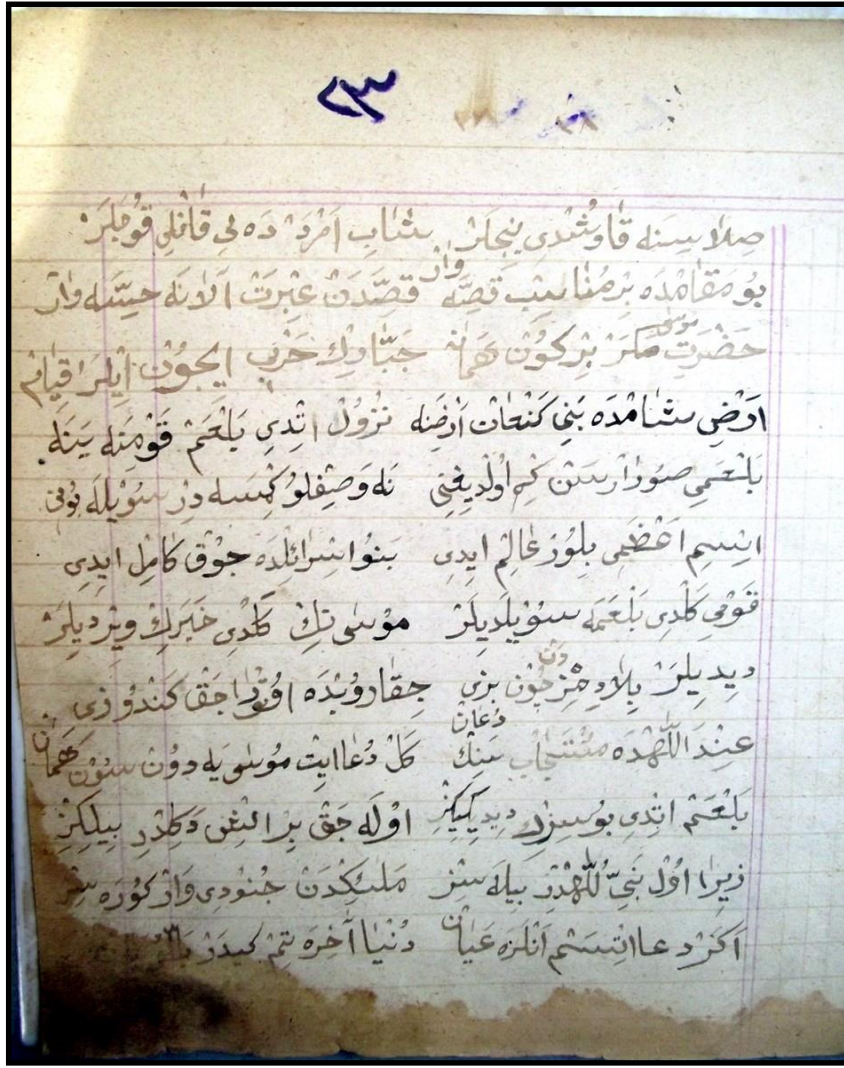 ٢٣
صِلاسِنه قَاوُشدِى نِيجَلَرْ شَابِ اَمْرَدْ دَه لِى قَانْلِى قُوجَلَرْ
بُو مَقَامْدَه بِرْ مُنَاسِبْ قِصَّه وَارْ قِصَّدَنْ عِبْرَتْ اَلَانَه حِصَّه وَارْ
حَضْرَتِ مُوسٰى مَكَرْ بِرْ كُونْ هَمَانْ جَبَّارِلَه حَرْبِ ايچُونْ اَيْلَرْ قِيَامْ
اَرْضِ شَامْدَه بَنِى كَنْعَانْ اَرْضِنَه نُزُولْ اِتْدِى بَلْعَمْ قَوْمِنَه يَنَه
بَلْعَمِى صُورَارْسَنْ كِمْ اُولْدِيغِنِى نَه وَصِفْلُو كِمْسَه دِرْ سُويْلَه بُونِى
اِسْمِ اَعْظَمِى بِلُورْ عَالِمْ ايدِى بَنُوا اِسْرَائِلْدَه جُوقْ كَامِلْ ايدِى
قَوْمِى كَلْدِى بَلْعَمَه سُويْلَدِيلَرْ مُوسٰى نِكْ كَلْدِى خَبَرِكْ وِيرْدِيلَرْ
دِيدِيلَرْ بِلَادِمِزْدَنْ چُونْ بِزِى چِقَارُوبْدَه اُوتُورَاجَقْ كَنْدُوزِى
عِنْدَ اللّٰهْدَه مُسْتَجَابْ سَنِكْ دُعَانْ كَلْ دُعَا ايتْ مُوسٰى يَه دُونْ سُونْ هَمَانْ
بَلْعَمْ اِتْدِى بُو سِزِكْ دِيدِيكِكِزْ اُولَه جَقْ بِرْ ايشْ دَكِلْدِرْ بِيلِكِزْ
زِيرَا اُولْ نَبِىُّ اللّٰهْدِرْ بِيلَه سِزْ مَلَئِكْدَنْ جُنُودِى وَارْ كُورَه سِزْ
اَكَرْ دعا اِتْسَمْ اَنْلَرَه عَيَانْ دُنْيَا آخِرَه تِمْ كِيدَرْ